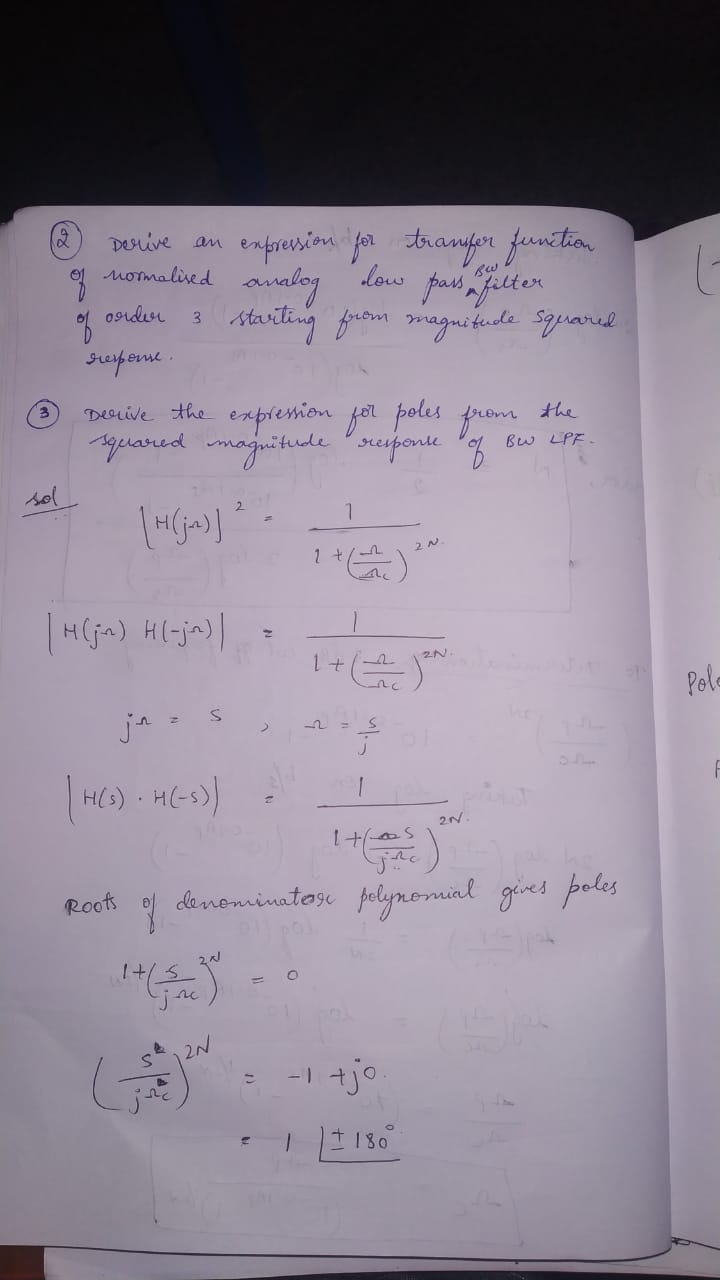 ② Derive an expression for transfer function
of normalised analog low pass BW filter
of order 3 starting from magnitude squared
response.
③ Derive the expression for poles from the
squared magnitude response of BW LPF.
sol
|H(jΩ)|² = 1 / (1 + (Ω/Ωc)^2N)
|H(jΩ) H(-jΩ)| = 1 / (1 + (Ω/Ωc)^2N)
jΩ = s , Ω = s/j
|H(s) . H(-s)| = 1 / (1 + (s/jΩc)^2N)
Roots of denominator polynomial gives poles
1 + (s/jΩc)^2N = 0
(s/jΩc)^2N = -1 + j0
= 1 ∠±180°